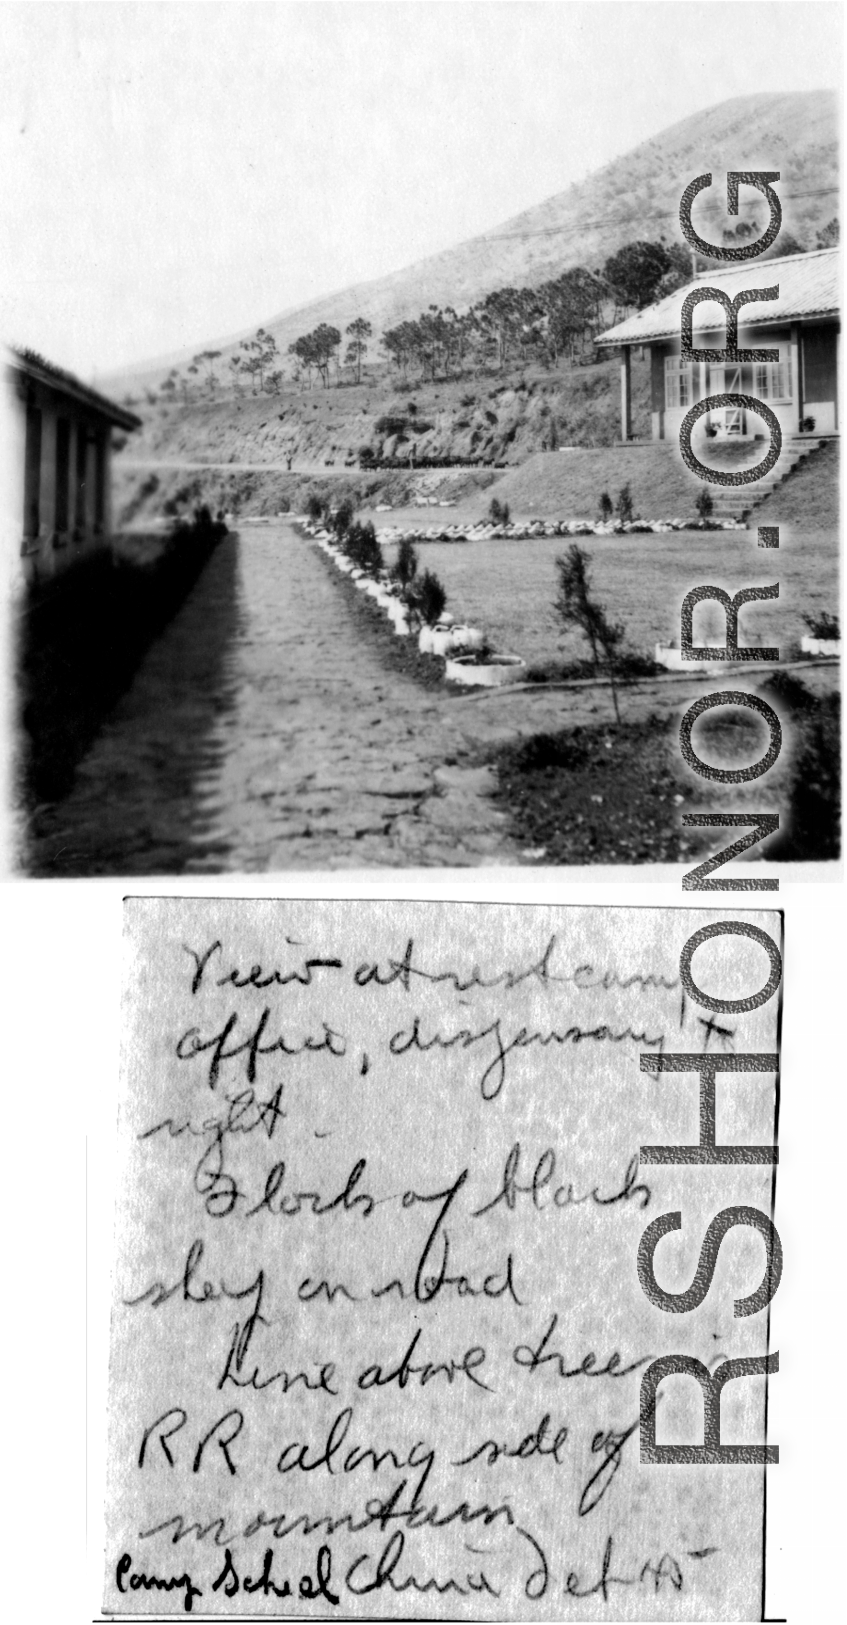 View at rest camp
office, dispensary to
right.
Flock of black
sheep on road
Line above trees is
RR along side of
mountain
Camp Schiel China Feb 45
RSHONOR.ORG